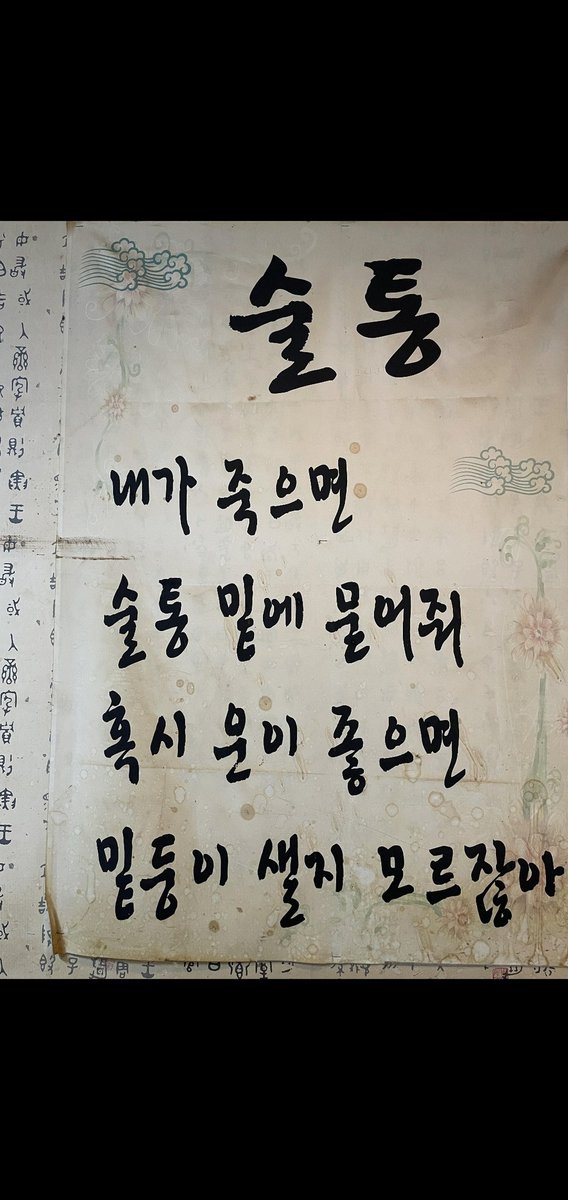 술통
내가 죽으면
술통 밑에 묻어줘
혹시 운이 좋으면
밑둥이 샐지 모르잖아